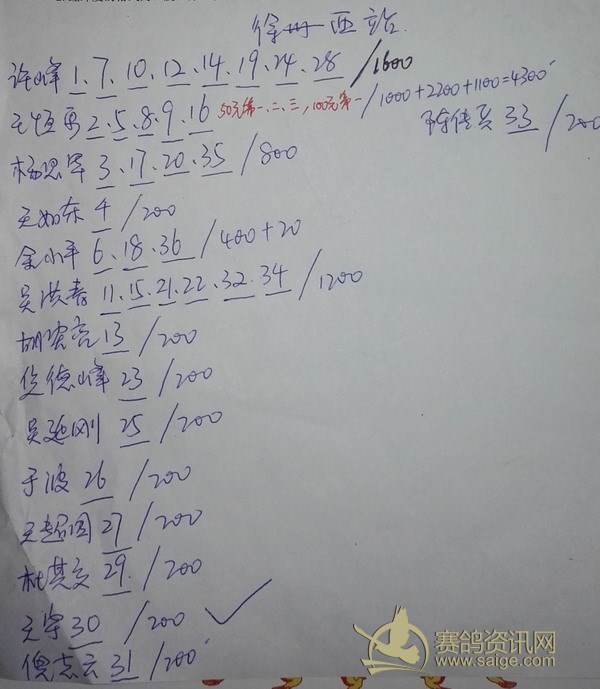 徐州西站
许峰 1、7、10、12、14、19、24、28 /1600
王恒勇 2、5、8、9、16 50元第一、二、三,100元第一 /1000+2200+1100=4300
33 /200
杨思军 3、17、20、35 /800
王如东 4 /200
余小平 6、18、36 /400+20
吴洪春 11、15、21、22、32、34 /1200
13 /200
德峰 23 /200
吴延刚 25 /200
于波 26 /200
王超国 27 /200
杜其文 29 /200
王宇 30 /200 ✓
倪志云 31 /200
赛鸽资讯网
www.saige.com